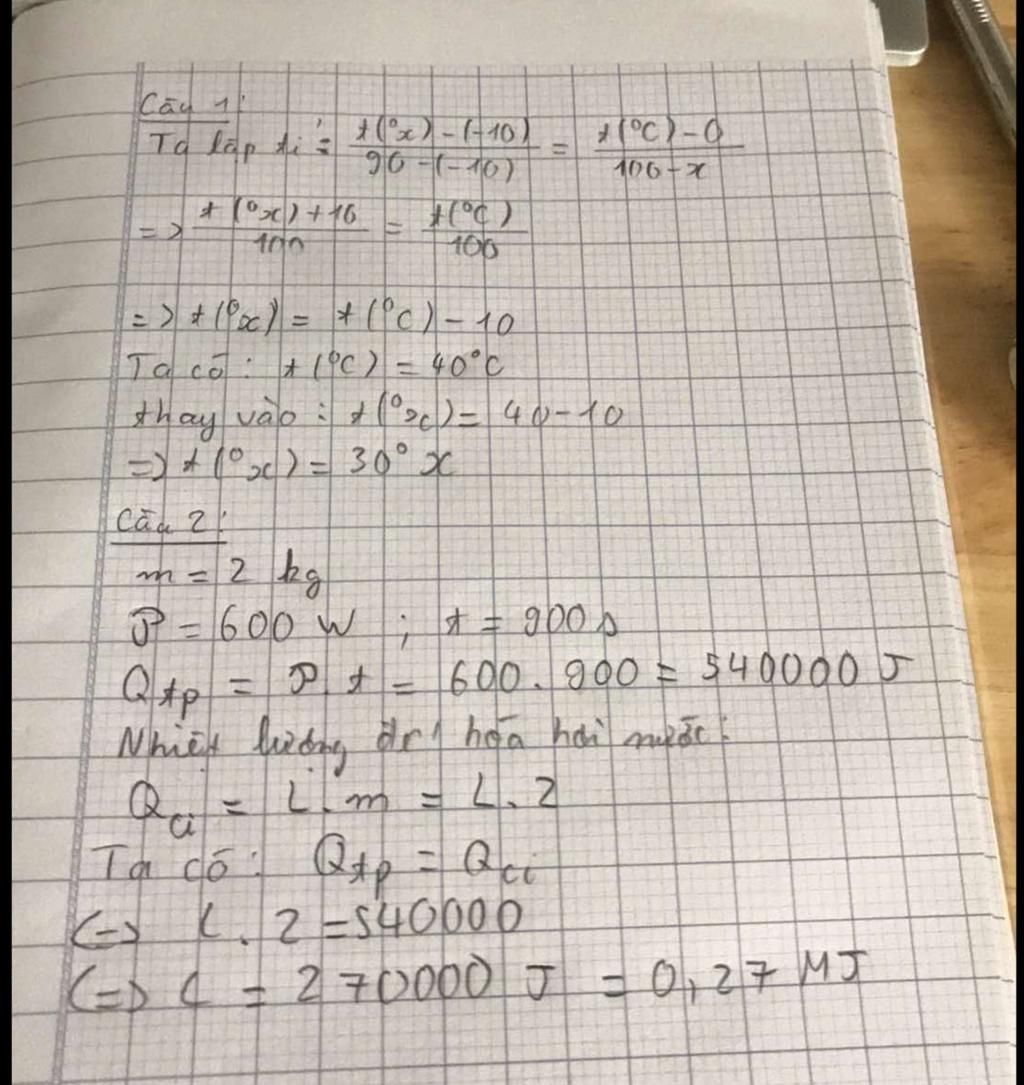 Câu 1:
Ta lập tỉ: t(°x) - (-10) / 90 - (-10) = t(°C) - 0 / 100 - x
=> t(°x) + 10 / 100 = t(°C) / 100
=> t(°x) = t(°C) - 10
Ta có: t(°C) = 40°C
thay vào: t(°x) = 40 - 10
=> t(°x) = 30°x
Câu 2:
m = 2 kg
P = 600 W ; t = 900 s
Qtp = P. t = 600. 900 = 540000 J
Nhiệt lượng để hóa hơi nước:
Qci = L.m = L. 2
Ta có: Qtp = Qci
<=> L. 2 = 540000
<=> L = 270000 J = 0,27 MJ